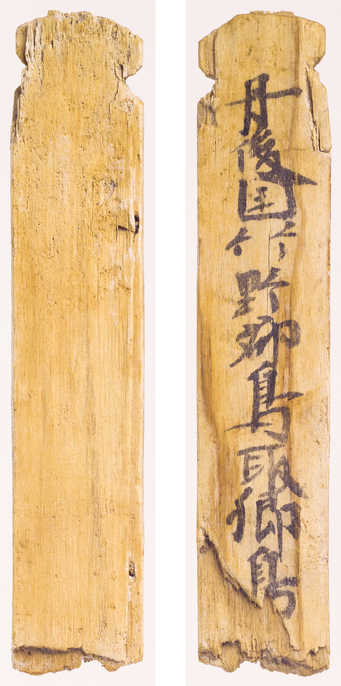 丹後国竹野郡鳥取郷鳥